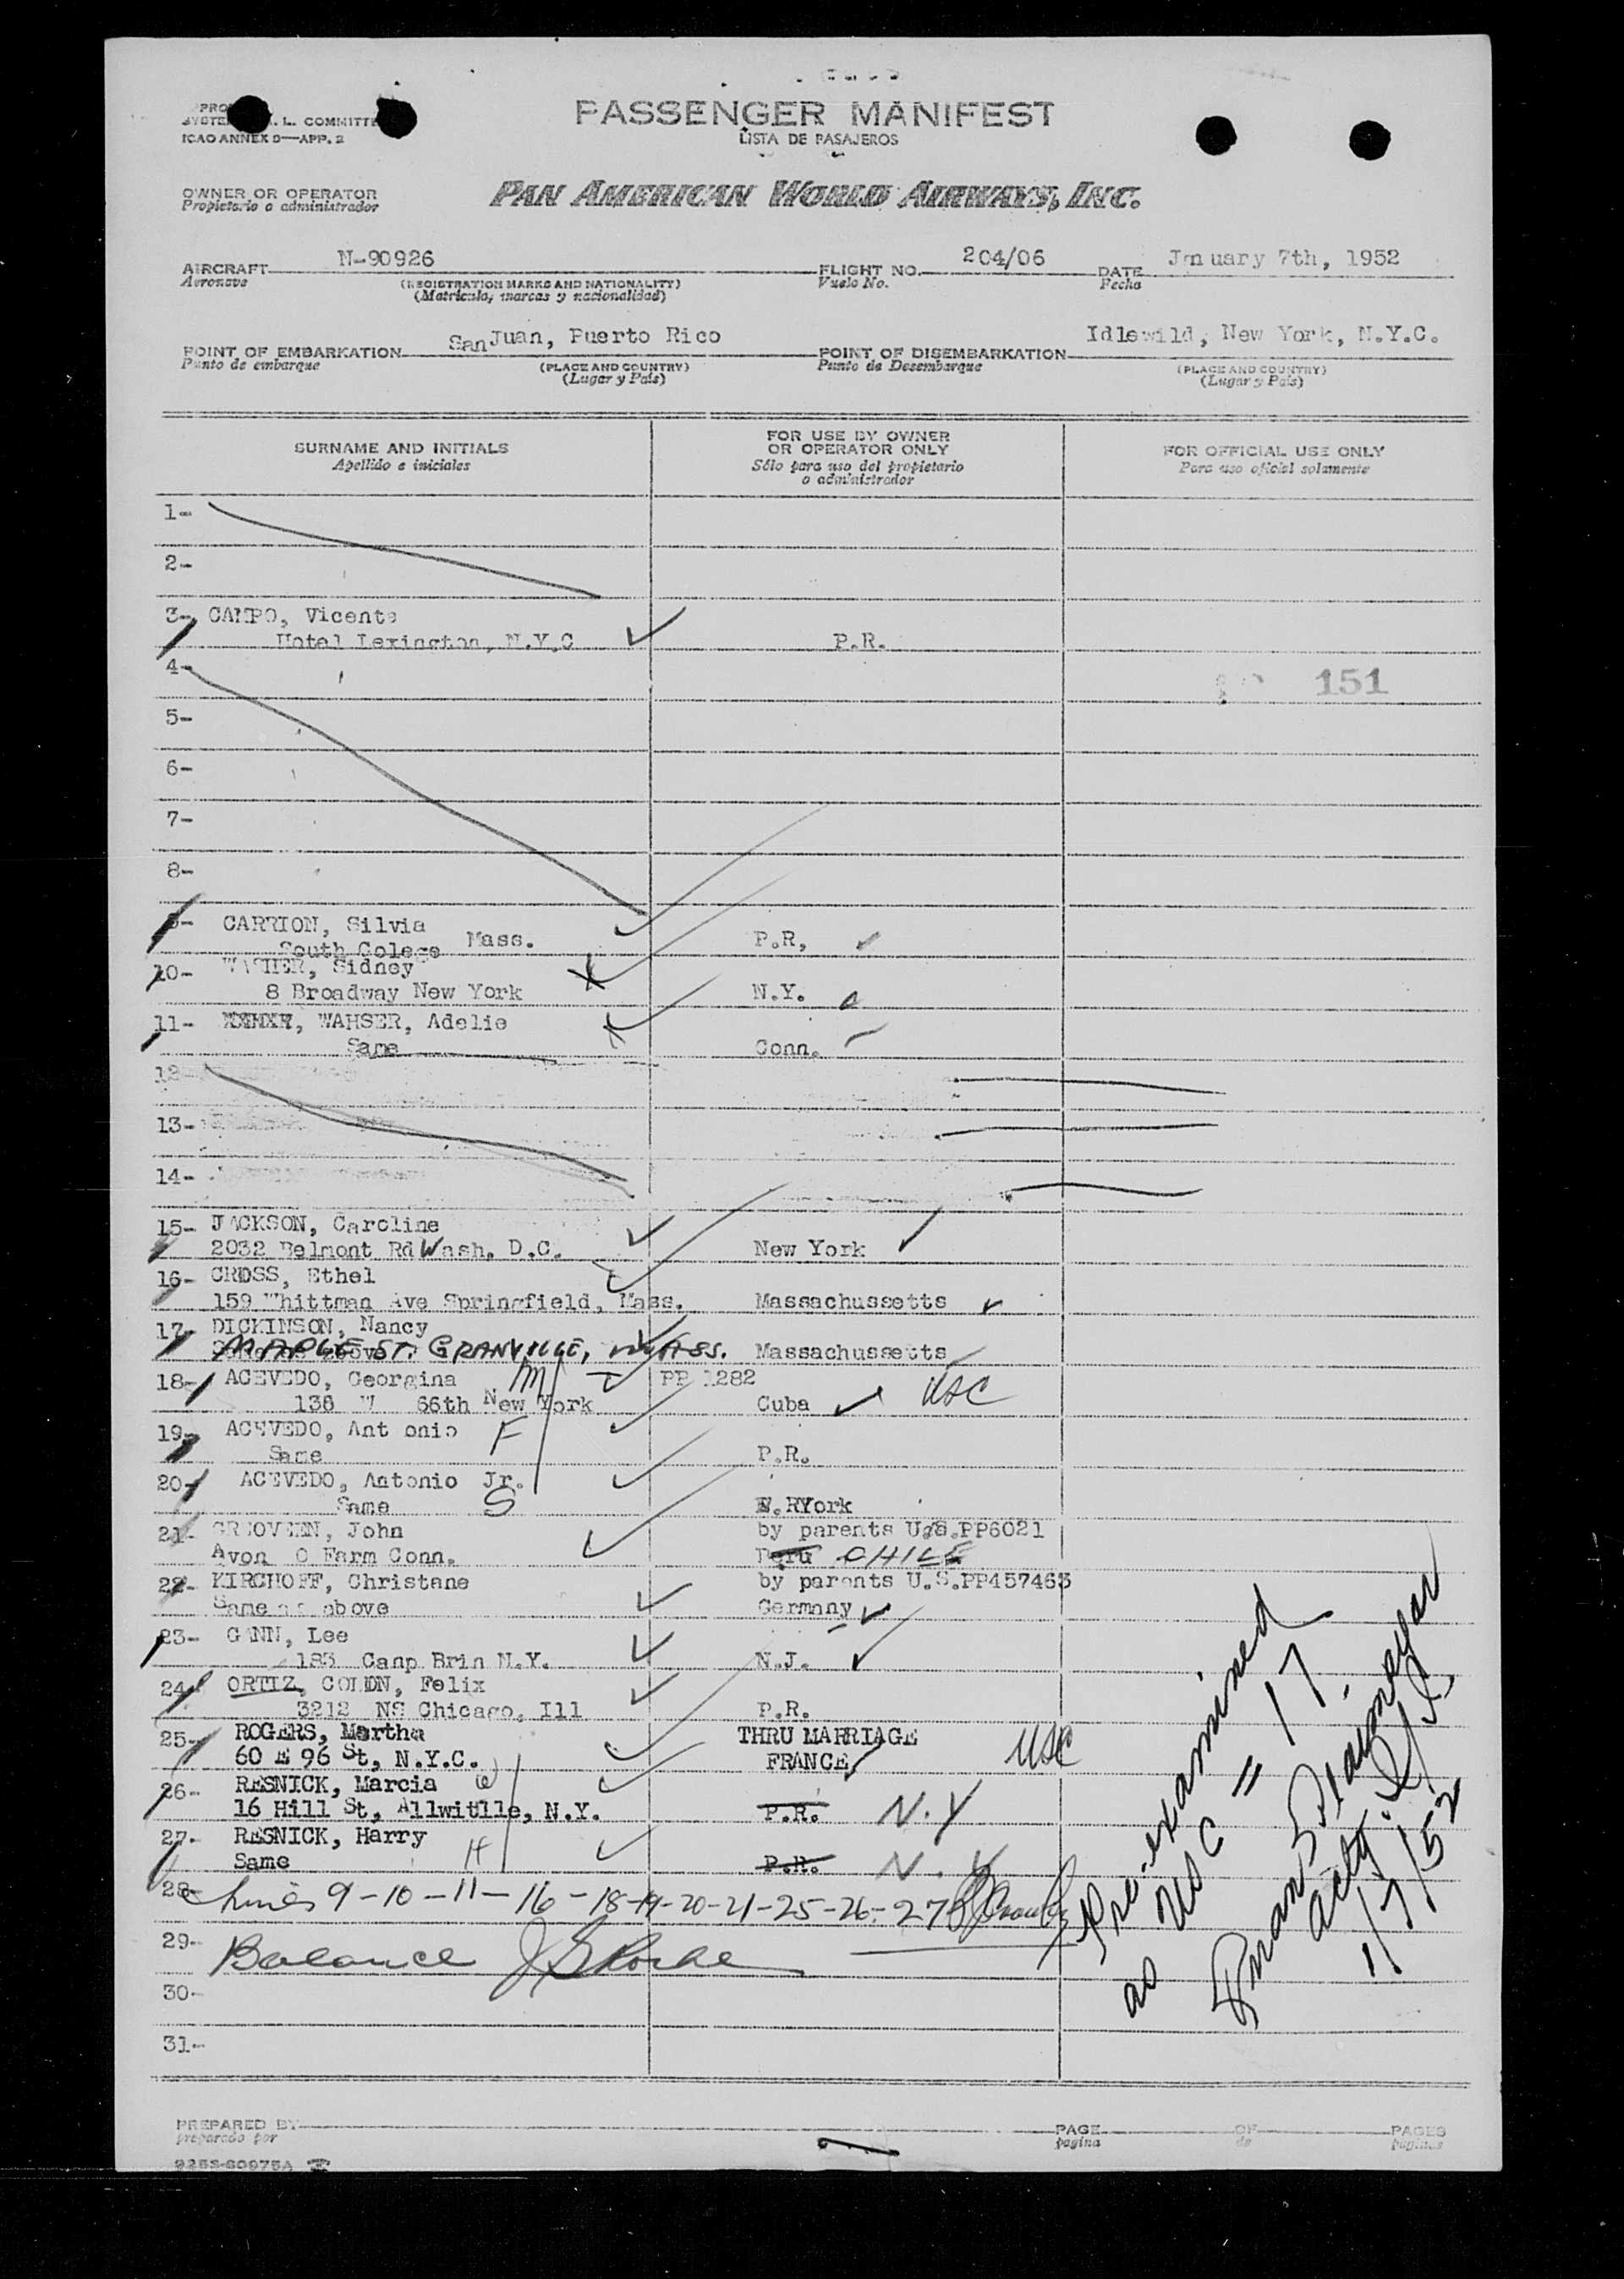 PASSENGER MANIFEST
LISTA DE PASAJEROS
L. COMMITTE
ICAO ANNEX 9—APP. 2
OWNER OR OPERATOR
Propietario o administrador
PAN AMERICAN WORLD AIRWAYS, INC.
AIRCRAFT N-90926 FLIGHT NO. 204/06 DATE January 7th, 1952
Aeronave (REGISTRATION MARKS AND NATIONALITY) Vuelo No. Fecha
(Matricula, marcas y nacionalidad)
POINT OF EMBARKATION San Juan, Puerto Rico POINT OF DISEMBARKATION Idlewild, New York, N.Y.C.
Punto de embarque (PLACE AND COUNTRY) Punto de Desembarque (PLACE AND COUNTRY)
(Lugar y País) (Lugar y País)
SURNAME AND INITIALS FOR USE BY OWNER OR OPERATOR ONLY FOR OFFICIAL USE ONLY
Apellido e iniciales Sólo para uso del propietario o administrador Para uso oficial solamente
1-
2-
3- CAMPO, Vicente
Hotel Lexington, N.Y.C P.R.
4- 151
5-
6-
7-
8-
9- CARRION, Silvia
South Colege Mass. P.R,
10- Sidney
8 Broadway New York N.Y.
11- WAHSER, Adelie
Same Conn.
12-
13-
14-
15- JACKSON, Caroline
2032 Belmont Rd Wash. D.C. New York
16- CROSS, Ethel
159 Whittman Ave Springfield, Mass. Massachussetts
17- DICKINSON, Nancy
MAPLE ST. GRANVILLE, MASS. Massachussetts
18- ACEVEDO, Georgina M PP 1282
138 W 66th New York Cuba USC
19- ACEVEDO, Antonio F
Same P.R.
20- ACEVEDO, Antonio Jr.
Same S York
21- John by parents U.S.PP6021
Avon O Farm Conn. Peru CHILE
22- KIRCHOFF, Christane by parents U.S.PP457463
Same as above Germany
23- GANN, Lee
183 Camp Brin N.Y. N.J.
24- ORTIZ, COLON, Felix
3212 NS Chicago, Ill P.R.
25- ROGERS, Martha THRU MARRIAGE
60 E 96 St, N.Y.C. FRANCE USC
26- RESNICK, Marcia W
16 Hill St, Allwitlle, N.Y. P.R. N.Y
27- RESNICK, Harry
Same H P.R. N.Y
28- Lines 9-10-11-16-18-19-20-21-25-26-27
29- Balance
30-
31-
Pre-examined
as USC = 17
1/7/52
PREPARED BY PAGE OF PAGES
preparado por pagina de paginas
9253-60975A